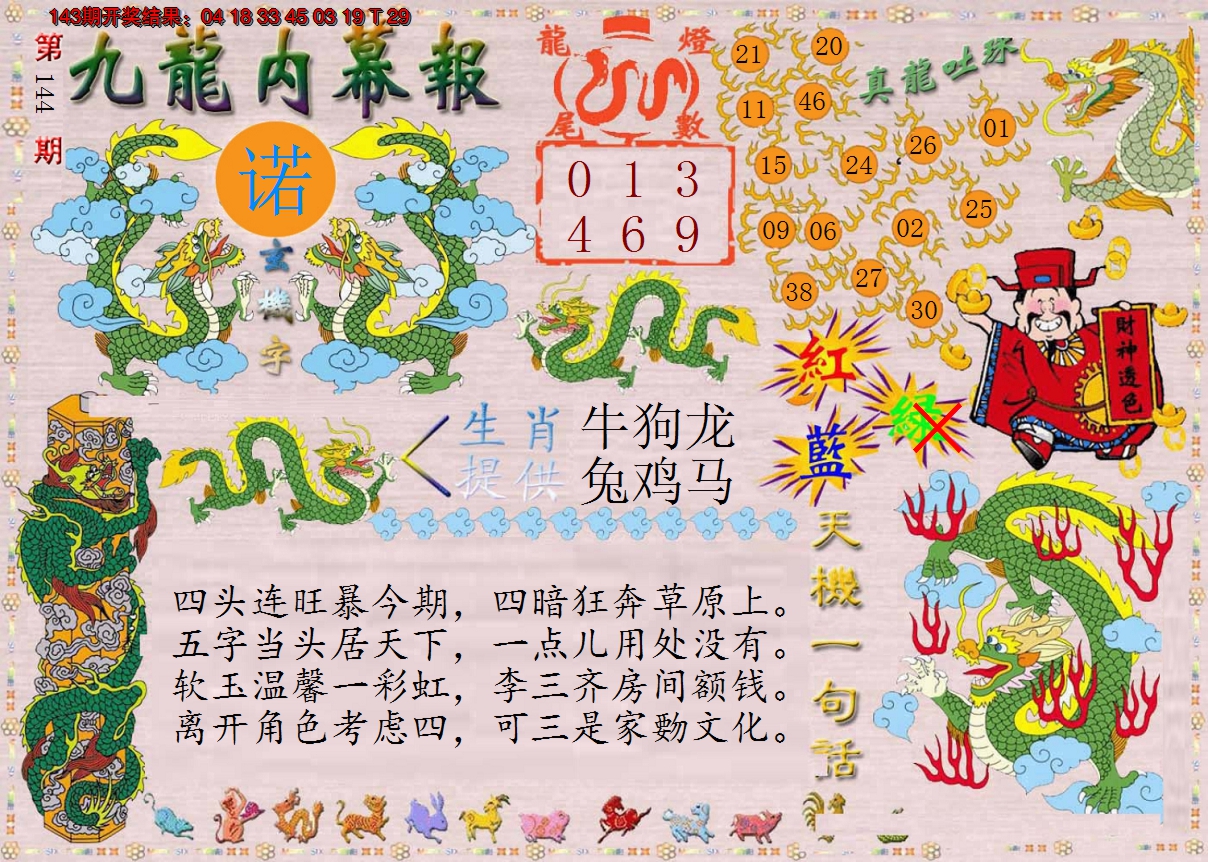 143期开奖结果：04 18 33 45 03 19 T 29
第144期
九龍内幕報
诺
玄機字
龍燈尾數
0 1 3
4 6 9
真龍吐珠
21 20
11 46
26 01
15 24
25
09 06 02
27
38
30
紅
綠
藍
財神透色
生肖 牛狗龙
提供 兔鸡马
天機一句話
四头连旺暴今期，四暗狂奔草原上。
五字当头居天下，一点儿用处没有。
软玉温馨一彩虹，李三齐房间额钱。
离开角色考虑四，可三是家覅文化。